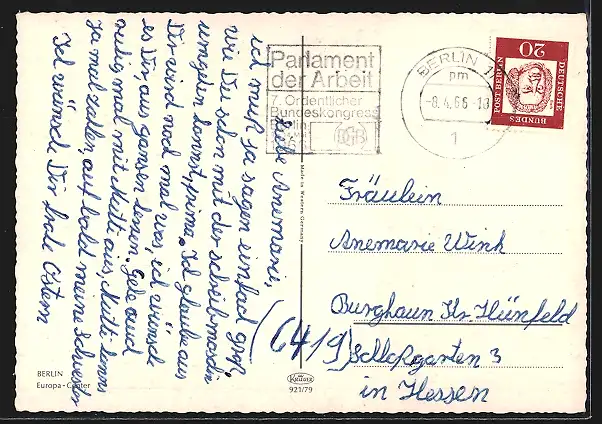 Liebe Anemarie,
ich muß ja sagen einfach groß,
wie Du schon mit der Schreibmaschin
umgehen kannst, prima. Ich glaube aus
Dir wird noch mal was, ich wünsch
es Dir aus ganzen Herzen. Gehe auch
ruhig mal mit Mutti aus, Mutti kanns
ja mal zahlen, auf bald meine Schwester
Ich wünsche Dir frohe Ostern
BERLIN
Europa-Center
Made in Western Germany
Krüger
921/79
Parlament
der Arbeit
7. Ordentlicher
Bundeskongress
Berlin
DGB
BERLIN
pm
-8.4.66-18
1
20
DEUTSCHE
BUNDES
POST BERLIN
Fräulein
Anemarie Wink
Burghaun Kr. Hünfeld
(6419) Schloßgarten 3
in Hessen